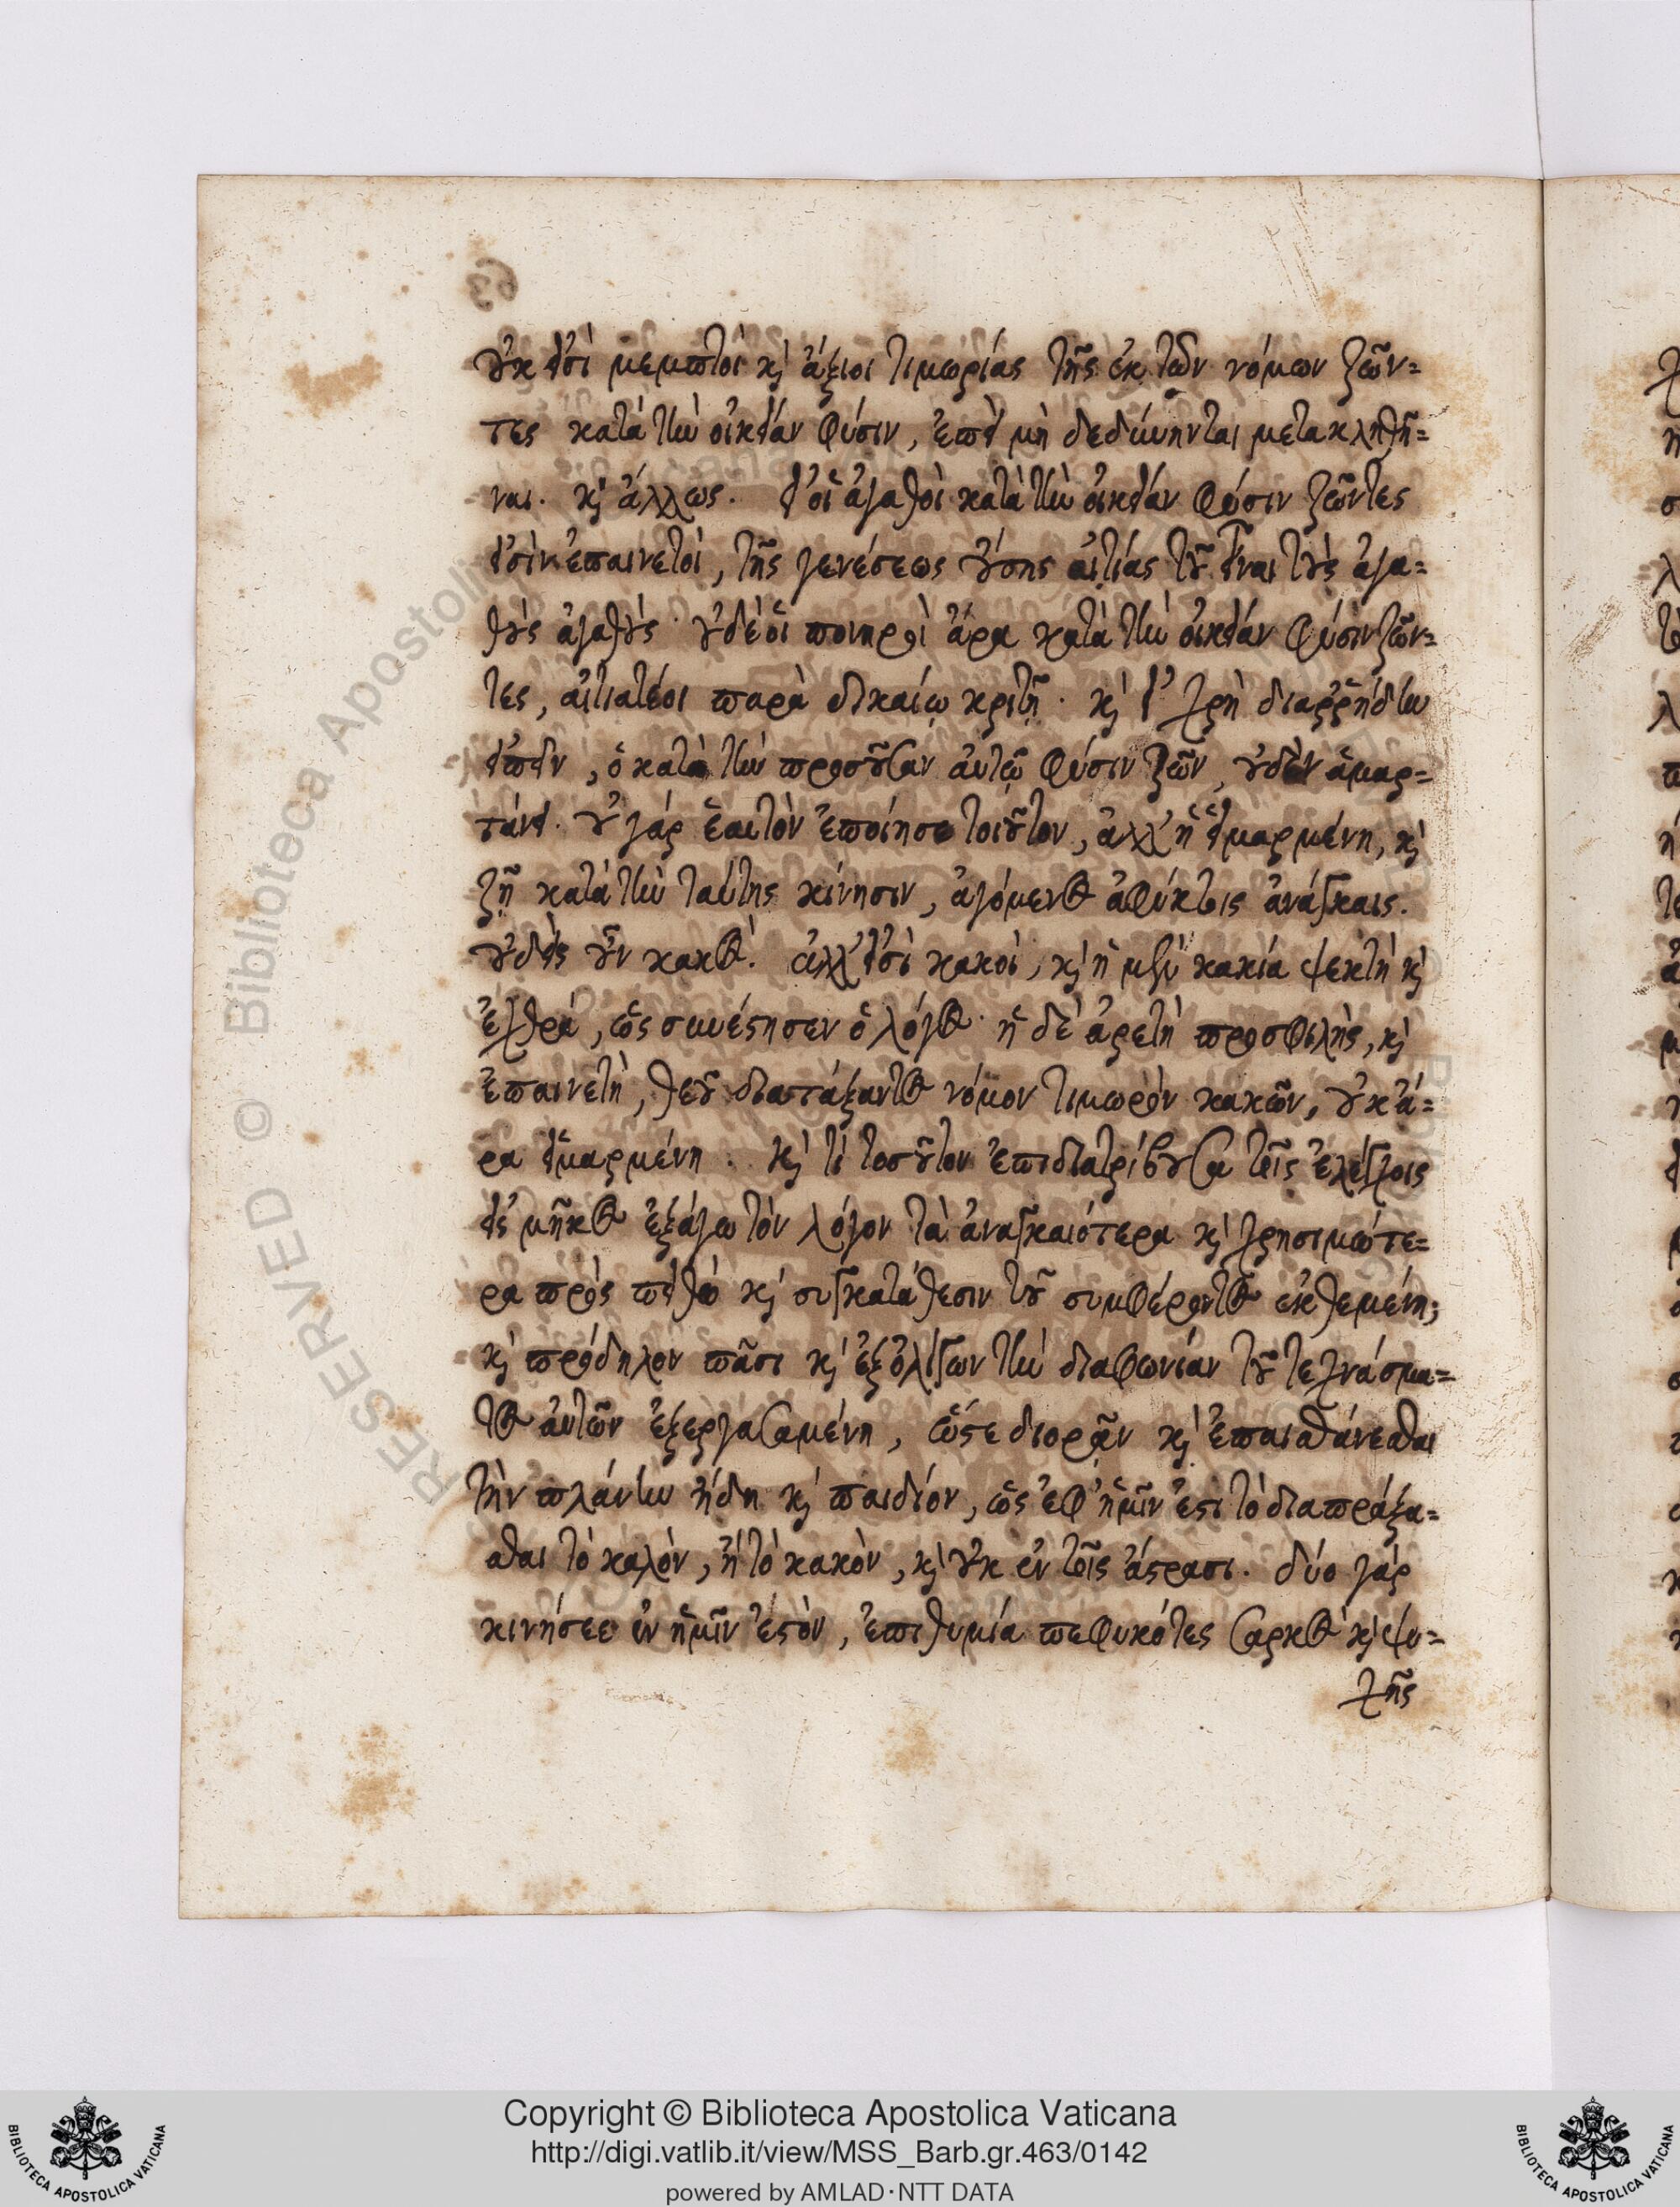 63
οὐκ εἰσὶ μεμπτοὶ καὶ ἄξιοι τιμωρίας τῆς ἐκ τῶν νόμων ζῶν=
τες κατὰ τὴν οἰκείαν φύσιν, ἐπεὶ μὴ δεδύνηνται μετακληθῆ=
ναι. καὶ ἄλλως. εἰ οἱ ἀγαθοὶ κατὰ τὴν οἰκείαν φύσιν ζῶντες
εἰσὶν ἐπαινετοί, τῆς γενέσεως οὔσης αἰτίας τοῦ εἶναι τοὺς ἀγα=
θοὺς ἀγαθούς· οὐδὲ οἱ πονηροὶ ἄρα κατὰ τὴν οἰκείαν φύσιν ζῶν=
τες, αἰτιατέοι παρὰ δικαίῳ κριτῇ. καὶ εἰ χρὴ διαῤῥήδην
εἰπεῖν, ὁ κατὰ τὴν προσοῦσαν αὐτῷ φύσιν ζῶν, οὐδὲν ἁμαρ=
τάνει. οὐ γάρ ἑαυτὸν ἐποίησε τοιοῦτον, ἀλλ' ἡ εἱμαρμένη, καὶ
ζῇ κατὰ τὴν ταύτης κίνησιν, ἀγόμενος ἀφύκτοις ἀνάγκαις.
οὐδεὶς οὖν κακός. ἀλλ' εἰσὶ κακοί, καὶ ἡ μὲν κακία ψεκτὴ καὶ
ἐχθρά, ὡς συνέστησεν ὁ λόγος· ἡ δὲ ἀρετὴ προσφιλὴς, καὶ
ἐπαινετὴ, θεοῦ διατάξαντος νόμον τιμωρὸν κακῶν, οὐκ ἄ=
ρα εἱμαρμένη. καὶ τί τοσοῦτον ἐπιδιατρίβουσα τοῖς ἐλέγχοις
εἰς μῆκος ἐξάγω τὸν λόγον τὰ ἀναγκαιότερα καὶ χρησιμώτε=
ρα πρὸς πειθὼ καὶ συγκατάθεσιν τοῦ συμφέροντος ἐκθεμένη;
καὶ πρόδηλον πᾶσι καὶ ἐξ ὀλίγων τὴν διαφωνίαν τοῦ τεχνάσμα=
τος αὐτῶν ἐξεργασαμένη, ὥστε διορᾷν καὶ ἐπαισθάνεσθαι
τὴν πλάνην ἤδη καὶ παιδίον, ὡς ἐφ' ἡμῖν ἐστι τὸ διαπράξα=
σθαι τὸ καλὸν, ἢ τὸ κακὸν, καὶ οὐκ ἐν τοῖς ἄστρασι. δύο γάρ
κινήσεε ἐν ἡμῖν ἐστὸν, ἐπιθυμία πεφυκότες σαρκὸς καὶ ψυ=
χῆς
RESERVED © Biblioteca Apostolica
Copyright © Biblioteca Apostolica Vaticana
http://digi.vatlib.it/view/MSS_Barb.gr.463/0142
powered by AMLAD·NTT DATA
BIBLIOTECA APOSTOLICA VATICANA
BIBLIOTECA APOSTOLICA VATICANA